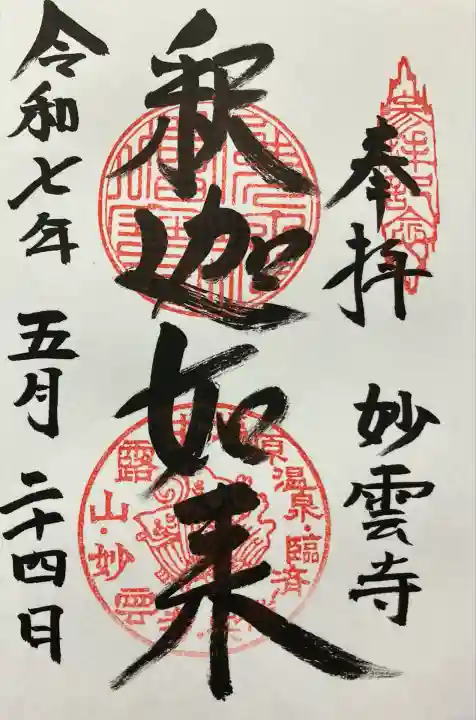 奉拝
妙雲寺
釈迦如来
令和七年 五月 二十四日
参拝記念
原温泉・臨済
露山・妙雲